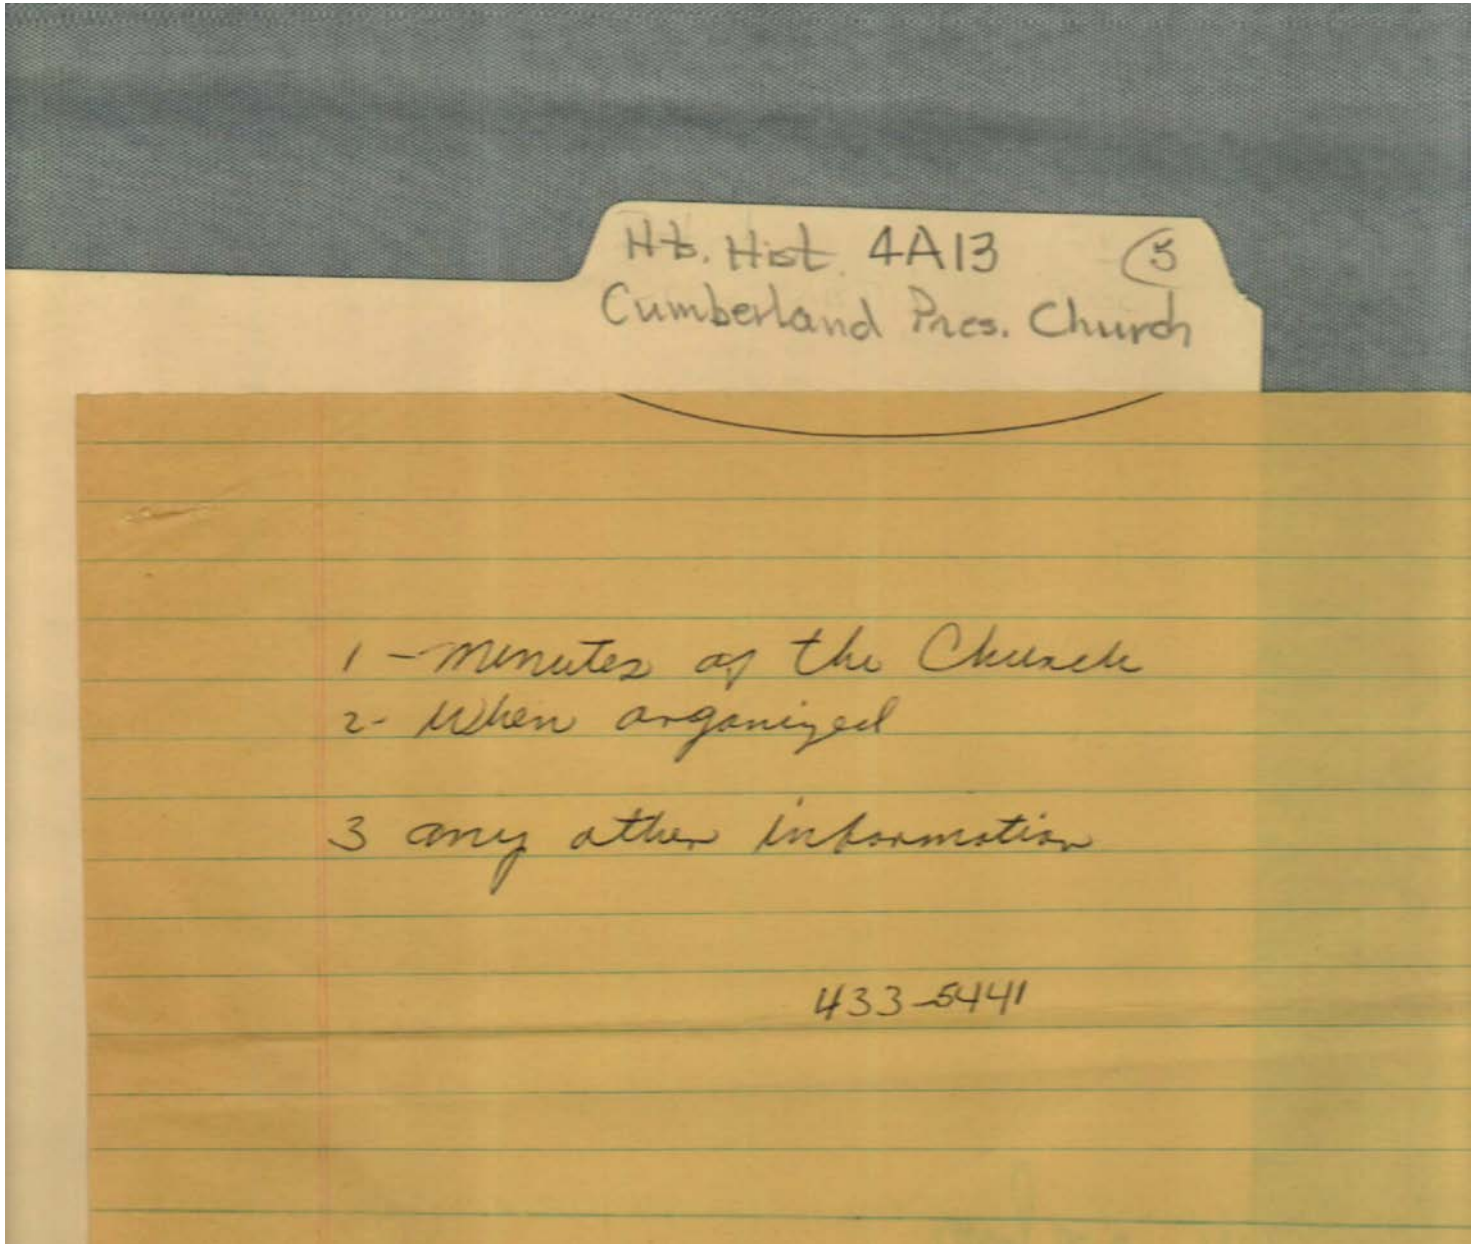 Hts. Hist. 4A13 5
Cumberland Pres. Church
1 - Minutes of the Church
2 - When organized
3 any other information
433-5441